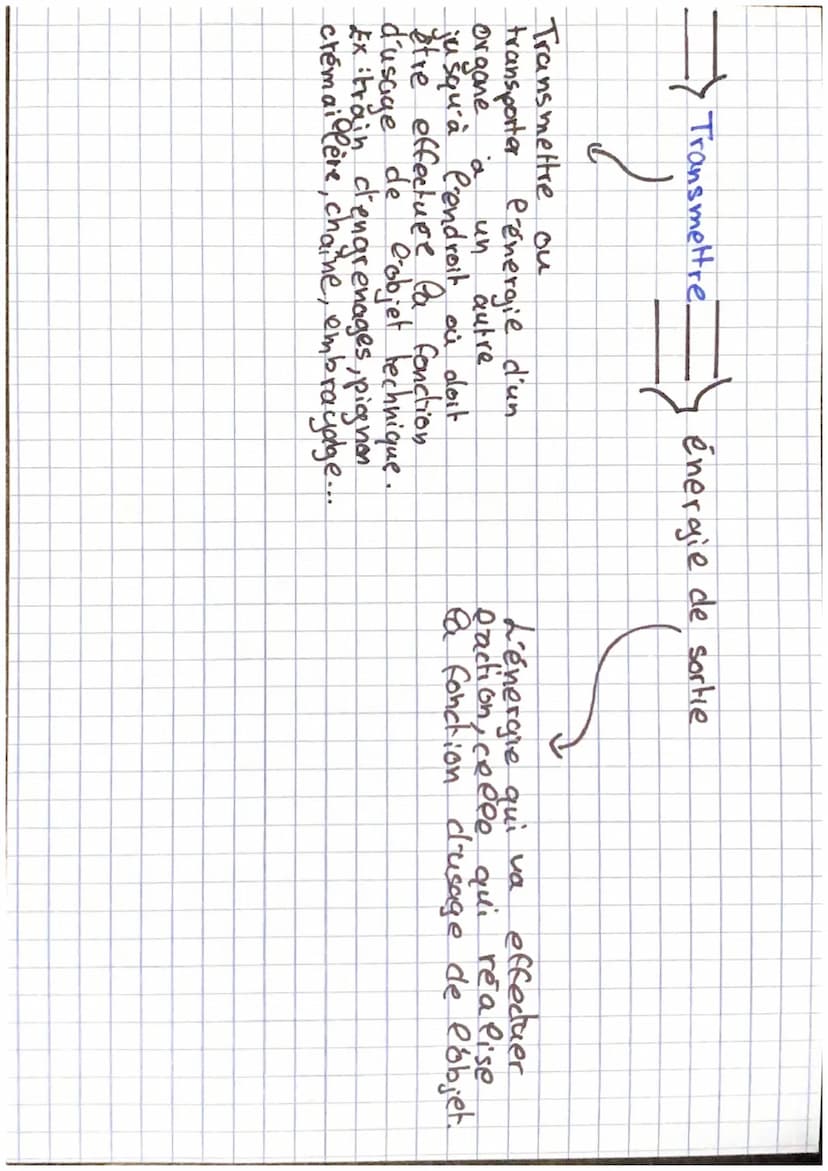 ⇒ Transmettre ⇒ énergie de sortie
Transmettre ou
transporter l'énergie d'un
organe à un autre
jusqu'à l'endroit où doit
être effectuée la fonction
d'usage de l'objet technique.
Ex : train d'engrenages, pignon
crémaillère, chaîne, embrayage...
L'énergie qui va effectuer
l'action, celle qui réalise
la fonction d'usage de l'objet.